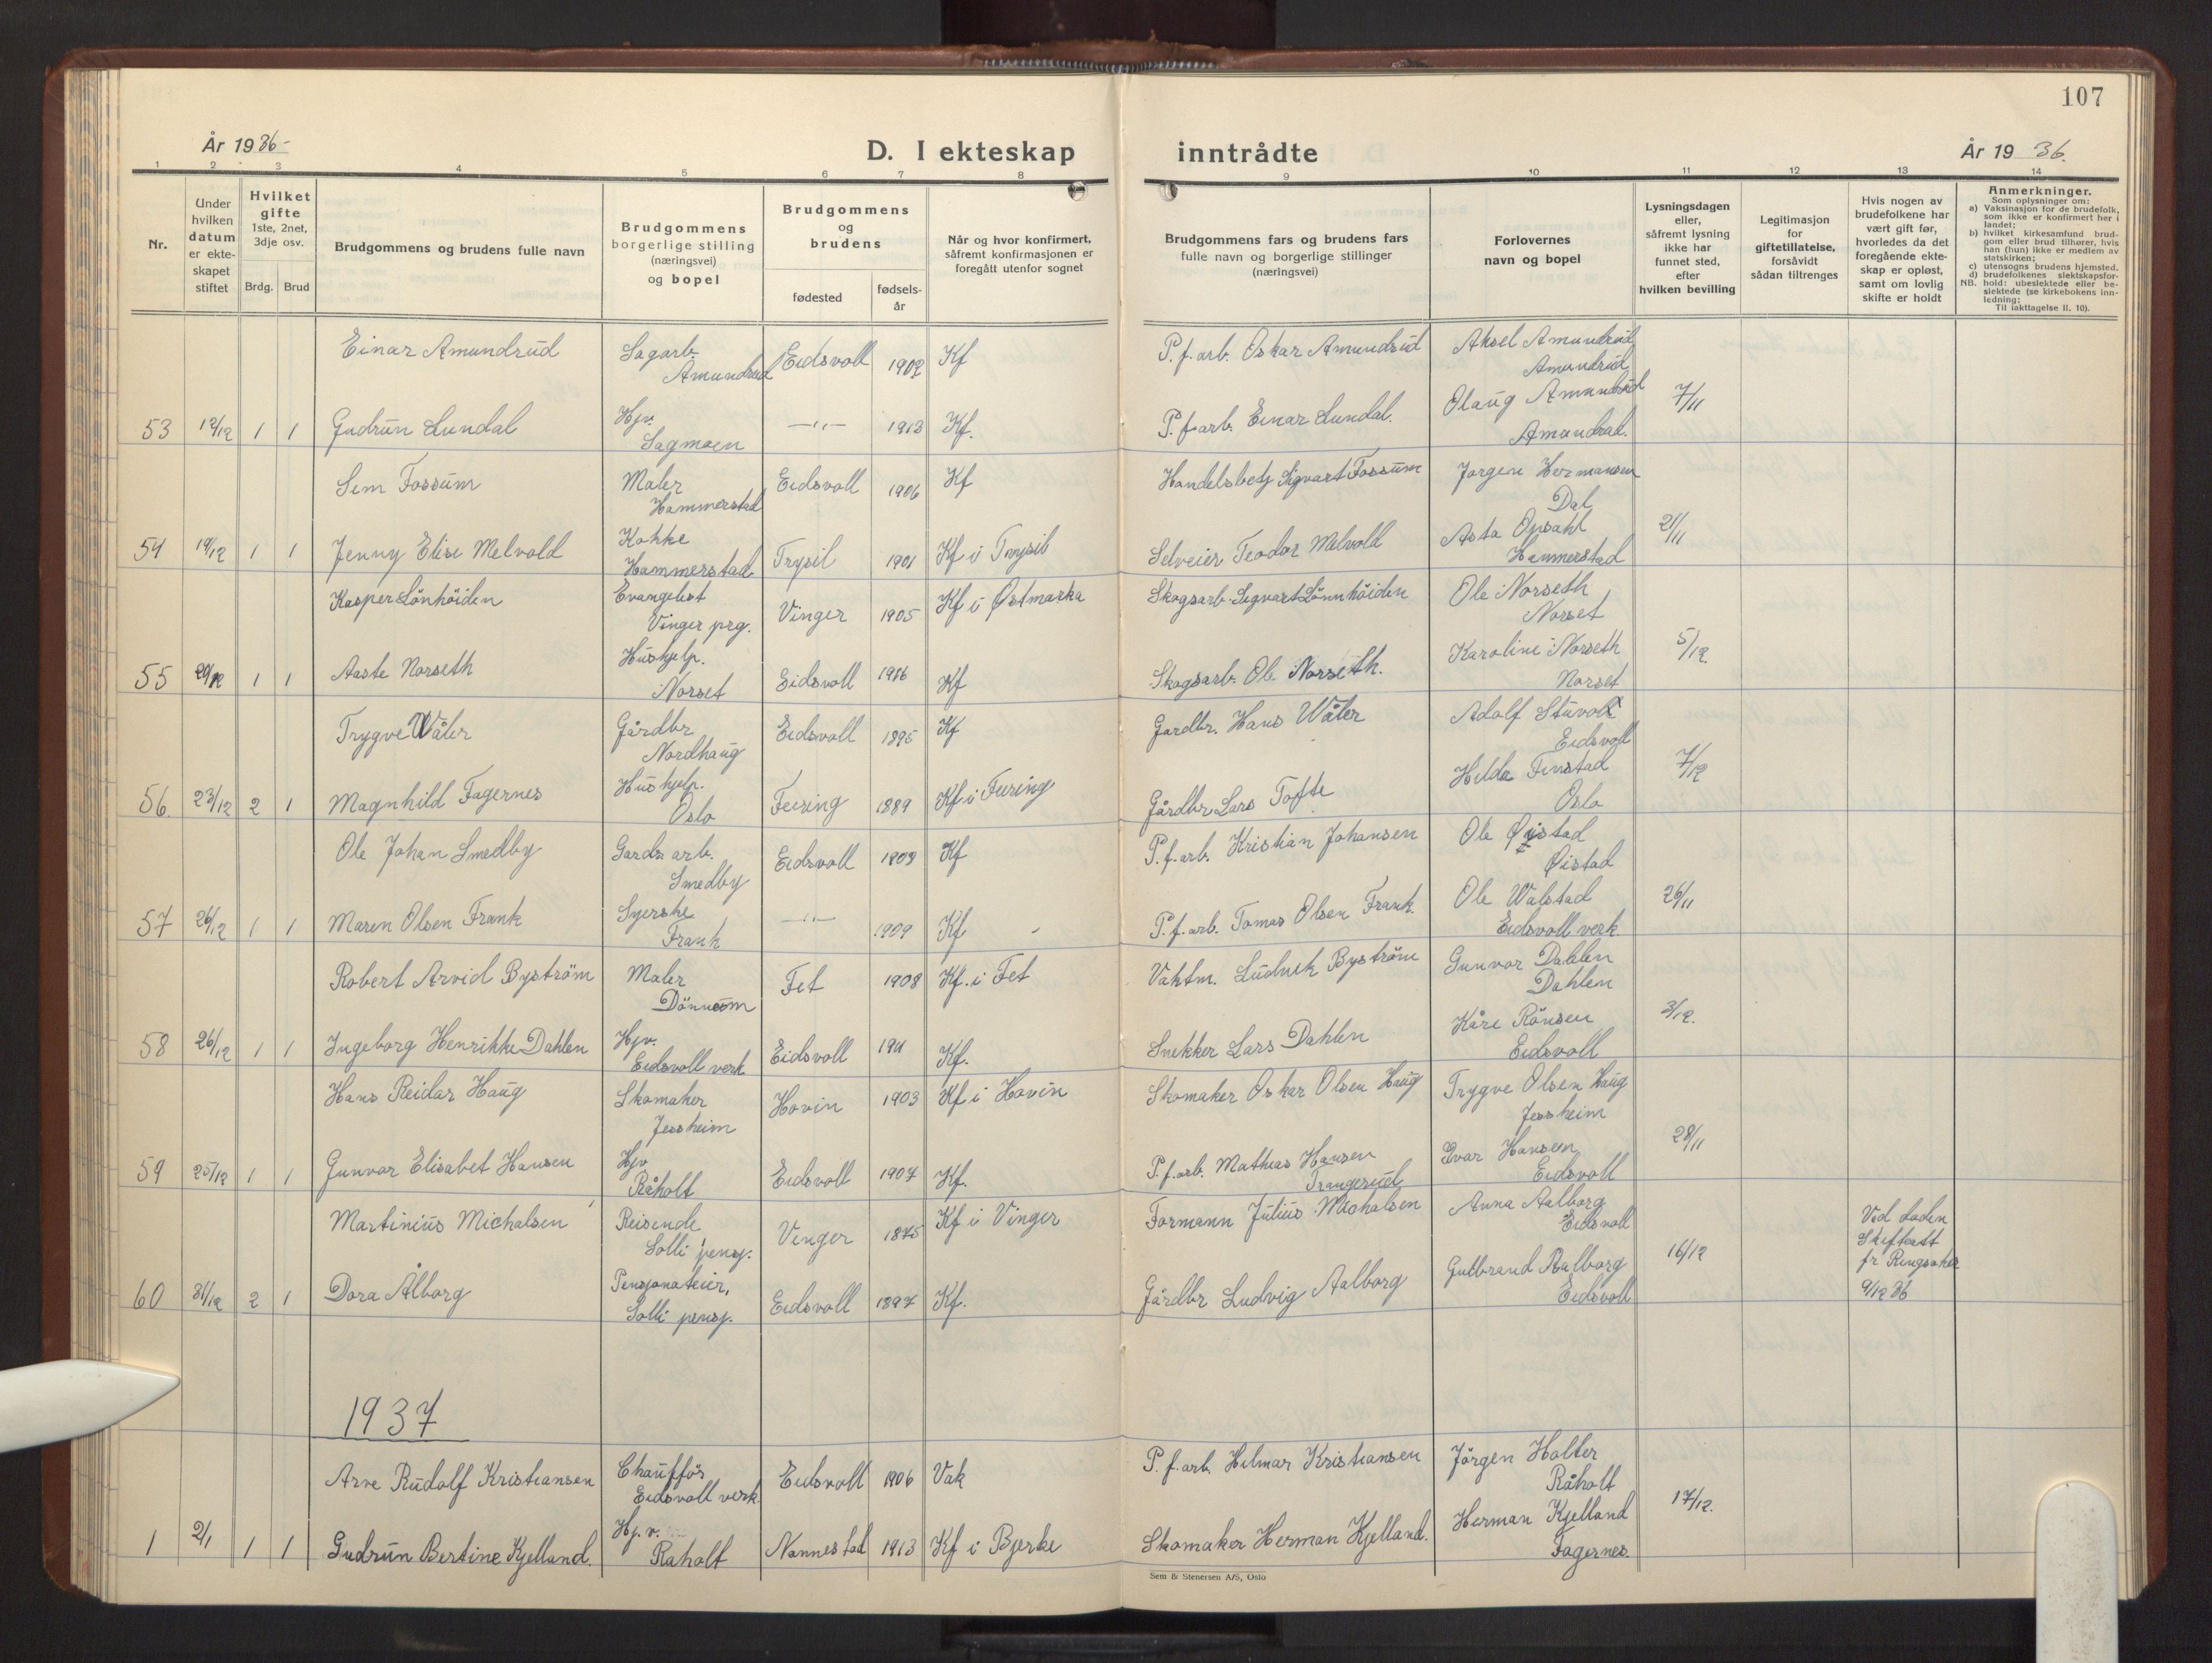 107
År 1936-
D. I ekteskap inntrådte
År 1936.
1 2 3 4 5 6 7 8 9 10 11 12 13 14
Nr.
Under hvilken datum er ekte-skapet stiftet
Hvilket gifte 1ste, 2net, 3dje osv.
Brdg. Brud
Brudgommens og brudens fulle navn
Brudgommens borgerlige stilling (næringsvei) og bopel
Brudgommens og brudens
fødested
fødsels-år
Når og hvor konfirmert, såfremt konfirmasjonen er foregått utenfor sognet
Brudgommens fars og brudens fars fulle navn og borgerlige stillinger (næringsvei)
Forlovernes navn og bopel
Lysningsdagen eller, såfremt lysning ikke har funnet sted, efter hvilken bevilling
Legitimasjon for giftetillatelse, forsåvidt sådan tiltrenges
Hvis nogen av brudefolkene har vært gift før, hvorledes da det foregående ekte-skap er opløst, samt om lovlig skifte er holdt
Anmerkninger.
Som oplysninger om:
a) Vaksinasjon for de brudefolk, som ikke er konfirmert her i landet;
b) hvilket kirkesamfund brud-gom eller brud tilhører, hvis han (hun) ikke er medlem av statskirken;
c) utensogns brudens hjemsted.
d) brudefolkenes slektskapsfor-hold: ubeslektede eller be-slektede (se kirkebokens inn-ledning;
NB. Til iakttagelse II. 10).
Einar Amundrud Sagarb. Amundrud Eidsvoll 1902 Kf P.f.arb. Oskar Amundrud Aksel Amundrud Amundrud
53 12/12 1 1 Gudrun Lundal Hjv. Sagmoen —"— 1913 Kf. P.f.arb. Einar Lundal. Olaug Amundrud Amundrud. 7/11
Sem Fossum Maler Hammerstad Eidsvoll 1906 Kf Handelsbetj Sigvart Fossum Jørgen Hermansen Dal
54 19/12 1 1 Jenny Elise Melvold Kokke Hammerstad Trysil 1901 Kf i Trysil Selveier Teodor Melvold Asta Opsahl Hammerstad 21/11
Kasper Lönhöiden Evangelist Vinger prg. Vinger 1905 Kf i Østmarka Skogsarb. Sigvart Lönnhöiden Ole Norseth Norset
55 20/12 1 1 Aaste Norseth Hushjelp. Norset Eidsvoll 1916 Kf Skogsarb. Ole Norseth. Karoline Norseth Norset 5/12
Trygve Wåler Gårdbr Nordhaug Eidsvoll 1895 Kf Gardbr. Hans Wåler Adolf Stuvoll Eidsvoll
56. 23/12 2 1 Magnhild Fagernes Hushjelp. Oslo Feiring 1889 Kf i Feiring Gårdbr Lars Tofte Hilda Finstad Oslo 7/12
Ole Johan Smedby Gardsarb. Smedby Eidsvoll 1909 Kf P.f.arb. Kristian Johansen Ole Øistad Øistad
57 26/12 1 1 Maren Olsen Frank Syerske Frank —"— 1909 Kf P.f.arb. Tomas Olsen Frank. Ole Walstad Eidsvoll verk 26/11
Robert Arvid Byström Maler Dönnum Fet 1908 Kf. i Fet Vaktm. Ludvik Byström Gunvor Dahlen Dahlen
58 26/12 1 1 Ingeborg Henrikke Dahlen Hjv. Eidsvoll verk Eidsvoll 1911 Kf. Snekker Lars Dahlen Kåre Rönsen Eidsvoll 3/12.
Hans Reidar Haug Skomaker Jessheim Hovin 1903 Kf i Hovin Skomaker Oskar Olsen Haug Trygve Olsen Haug Jessheim
59 25/12 1 1 Gunvor Elisabet Hansen Hjv Råholt Eidsvoll 1907 Kf. P.f.arb. Mathias Hansen Trangerud Ivar Hansen Eidsvoll 28/11
Martinius Michalsen Reisende Solli pensj. Vinger 1875 Kf i Vinger Formann Julius Michalsen Anna Aalborg Eidsvoll Ved døden Skifteatt fr Ringsaker 9/12 36
60 31/12 2 1 Dora Ålborg Pensjonateier, Solli pensj. Eidsvoll 1897 Kf. Gårdbr Ludvig Aalborg Gulbrand Aalborg Eidsvoll 16/12
1937
Arve Rudolf Kristiansen Chaufför Eidsvoll verk Eidsvoll 1906 Vak P.f.arb. Hilmar Kristiansen Jörgen Holter Råholt
1 2/1 1 1 Gudrun Bertine Kjelland. Hj.v. Råholt Nannestad 1913 Kf i Bjerke Skomaker Herman Kjelland. Herman Kjelland Fagernes. 17/12.
Sem & Stenersen A/S, Oslo